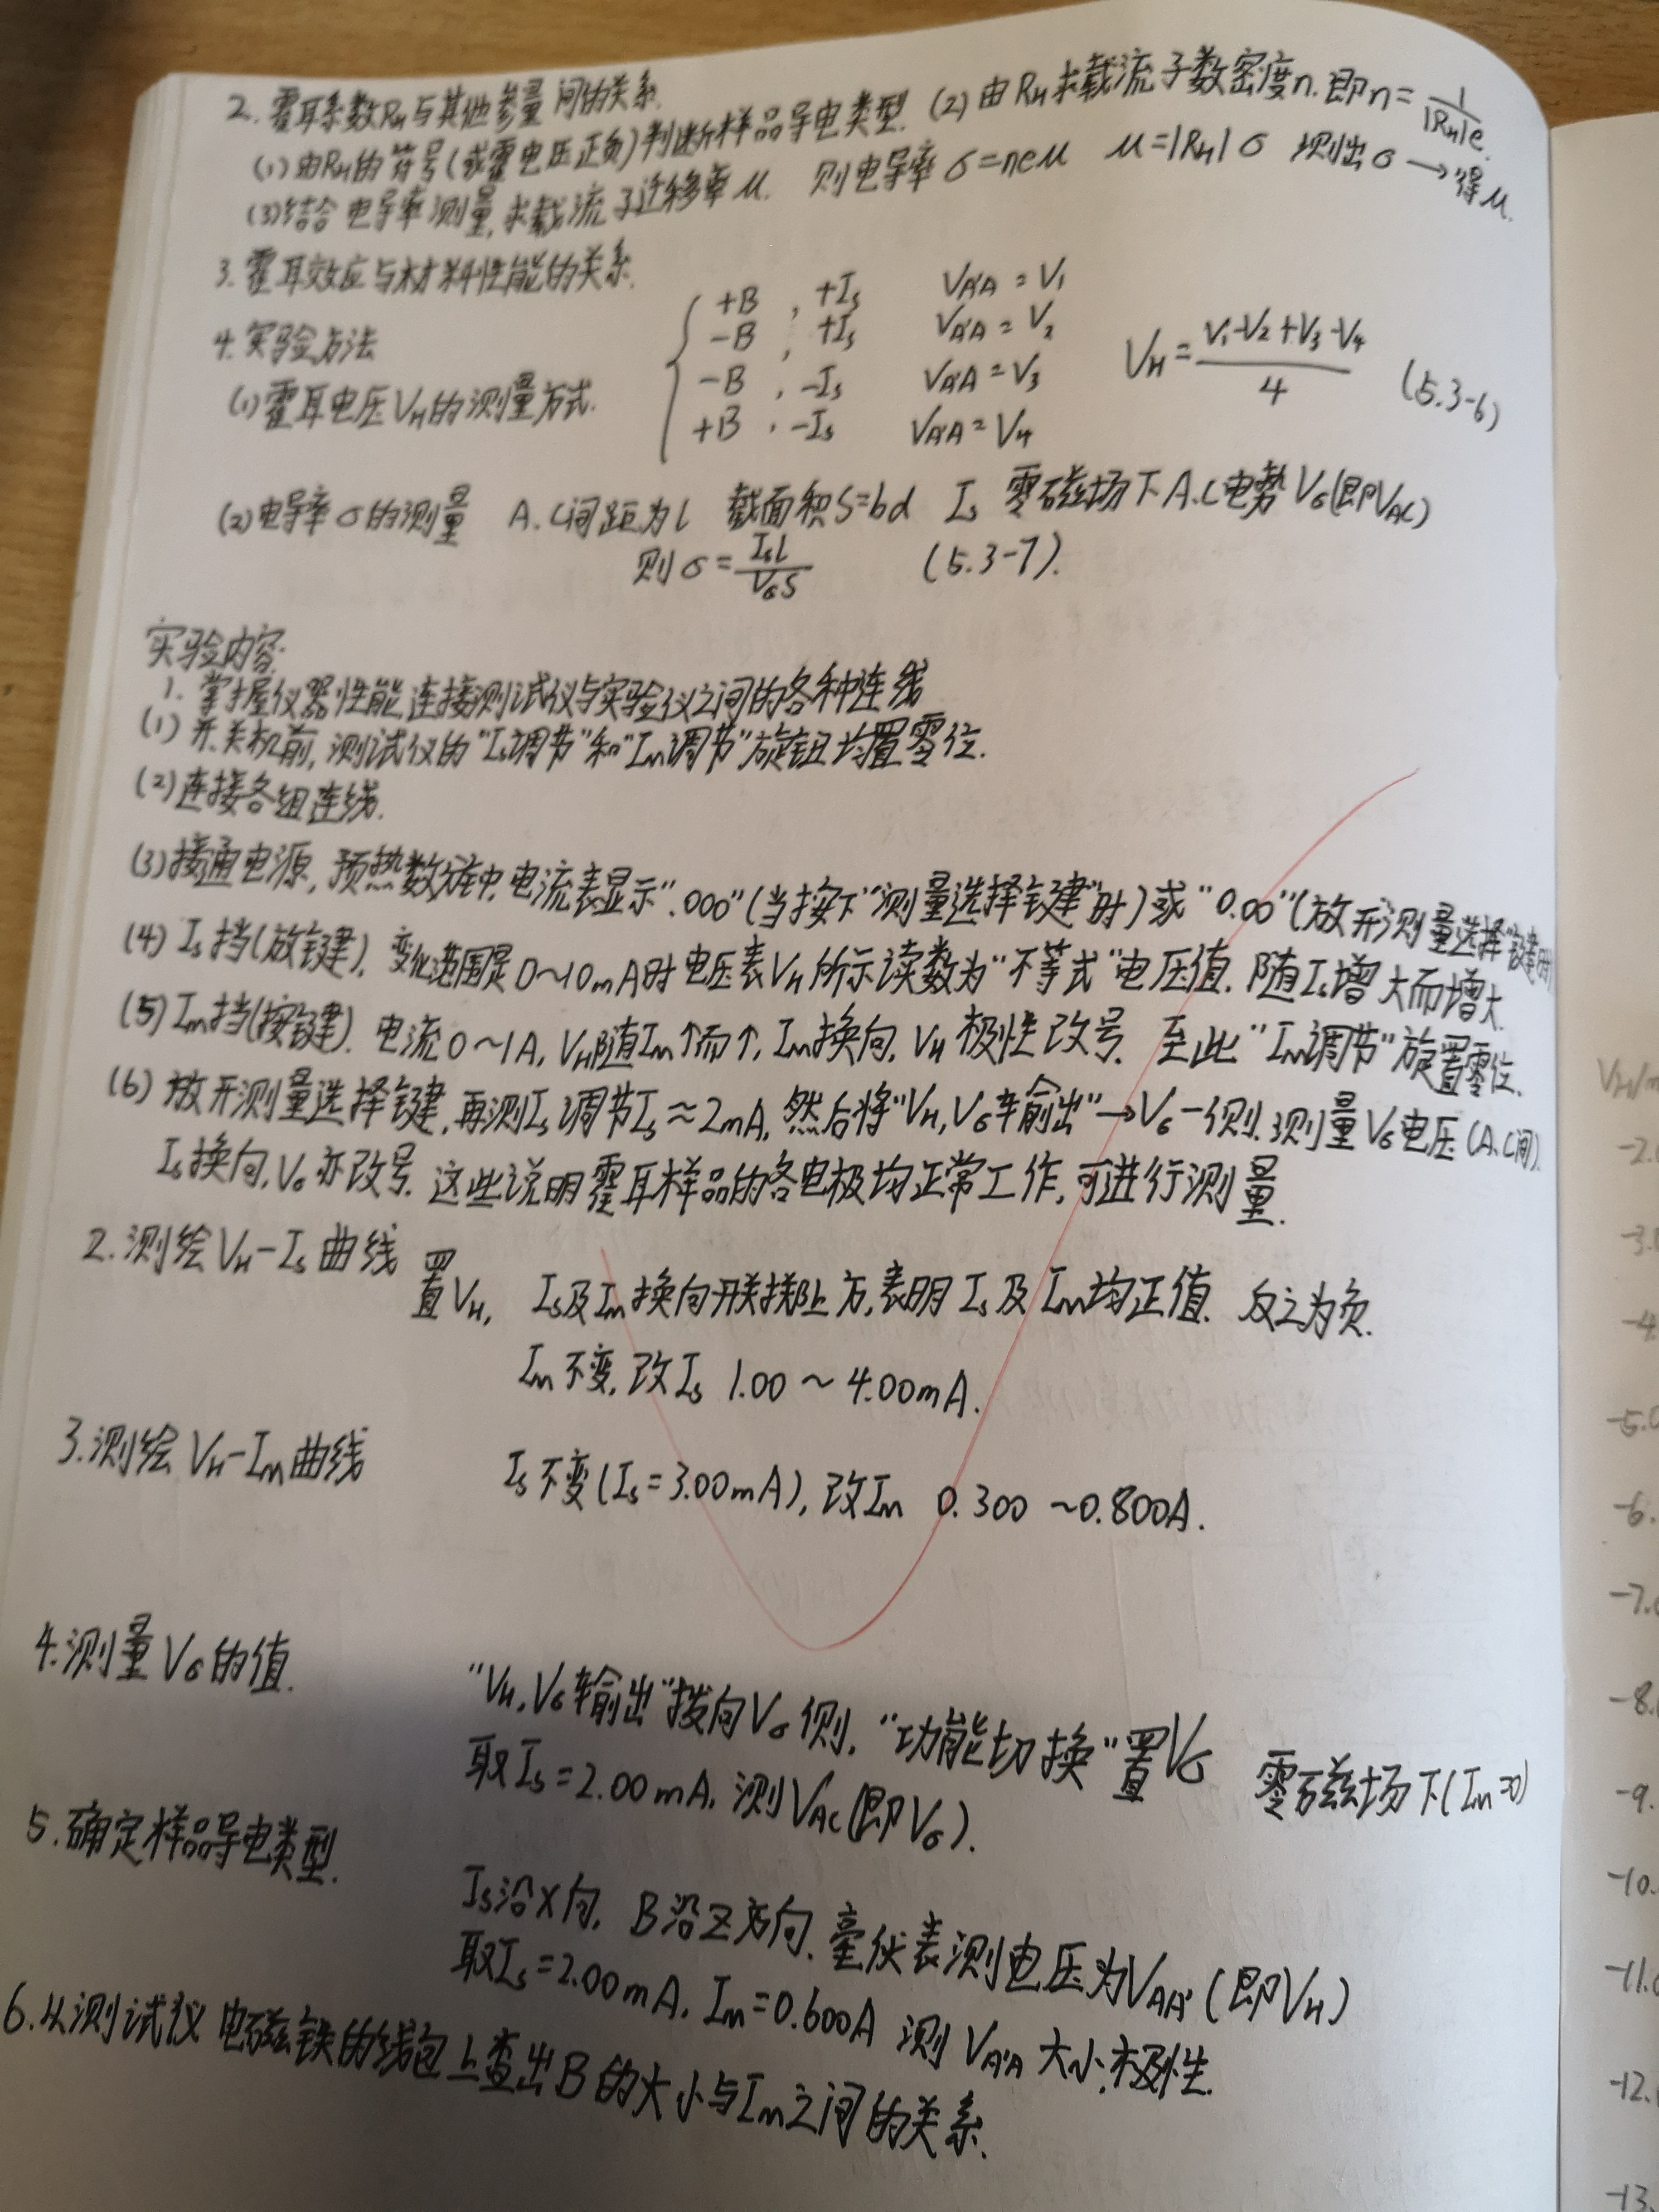 2. 霍耳系数RH与其他参量间的关系.
(1)由RH的符号(或霍电压正负)判断样品导电类型. (2)由RH求载流子数密度n.即n=1/|RH|e.
(3)结合电导率测量,求载流子迁移率μ. 则电导率σ=neμ μ=|RH|σ 测出σ→得μ.
3. 霍耳效应与材料性能的关系.
4.实验方法
(1)霍耳电压VH的测量方式.
+B , +Is VA'A = V1
-B , +Is VA'A = V2
-B , -Is VA'A = V3
+B , -Is VA'A = V4
VH = (V1-V2+V3-V4)/4 (5.3-6)
(2)电导率σ的测量 A.C间距为l 截面积S=bd Is 零磁场下A.C电势Vσ(即VAC)
则σ=Isl/VσS (5.3-7).
实验内容:
1. 掌握仪器性能,连接测试仪与实验仪之间的各种连线
(1) 开.关机前,测试仪的"Is调节"和"Im调节"旋钮均置零位.
(2)连接各组连线.
(3)接通电源,预热数分钟,电流表显示".000"(当按下"测量选择键"时)或"0.00"(放开测量选择键时
(4) Is挡(放键), 变化范围是0~10mA时电压表VH所示读数为"不等式"电压值,随Is增大而增大.
(5) Im挡(按键). 电流0~1A, VH随Im↑而↑, Im换向, VH极性改号. 至此"Im调节"旋置零位.
(6) 放开测量选择键,再测Is,调节Is≈2mA,然后将"VH,Vσ输出"→Vσ一侧.测量Vσ电压(A.C间).
Is换向,Vσ亦改号. 这些说明霍耳样品的各电极均正常工作,可进行测量.
2.测绘VH-Is曲线
置VH, Is及Im换向开关掷上方,表明Is及Im均正值. 反之为负.
Im不变,改Is 1.00~4.00mA.
3.测绘VH-Im曲线
Is不变(Is=3.00mA),改Im 0.300~0.800A.
4.测量Vσ的值.
"VH,Vσ输出"拨向Vσ侧, "功能切换"置Vσ 零磁场下(Im=0)
取Is=2.00mA, 测VAC(即Vσ).
5.确定样品导电类型.
Is沿X向, B沿Z方向.毫伏表测电压为VAA'(即VH)
取Is=2.00mA, Im=0.600A 测VA'A大小,极性.
6.从测试仪电磁铁的线包上查出B的大小与Im之间的关系.
VH/m
-2.
-3.
-4.
-5.0
-6.
-7.0
-8.
-9.
-10.
-11.0
-12.
-13.